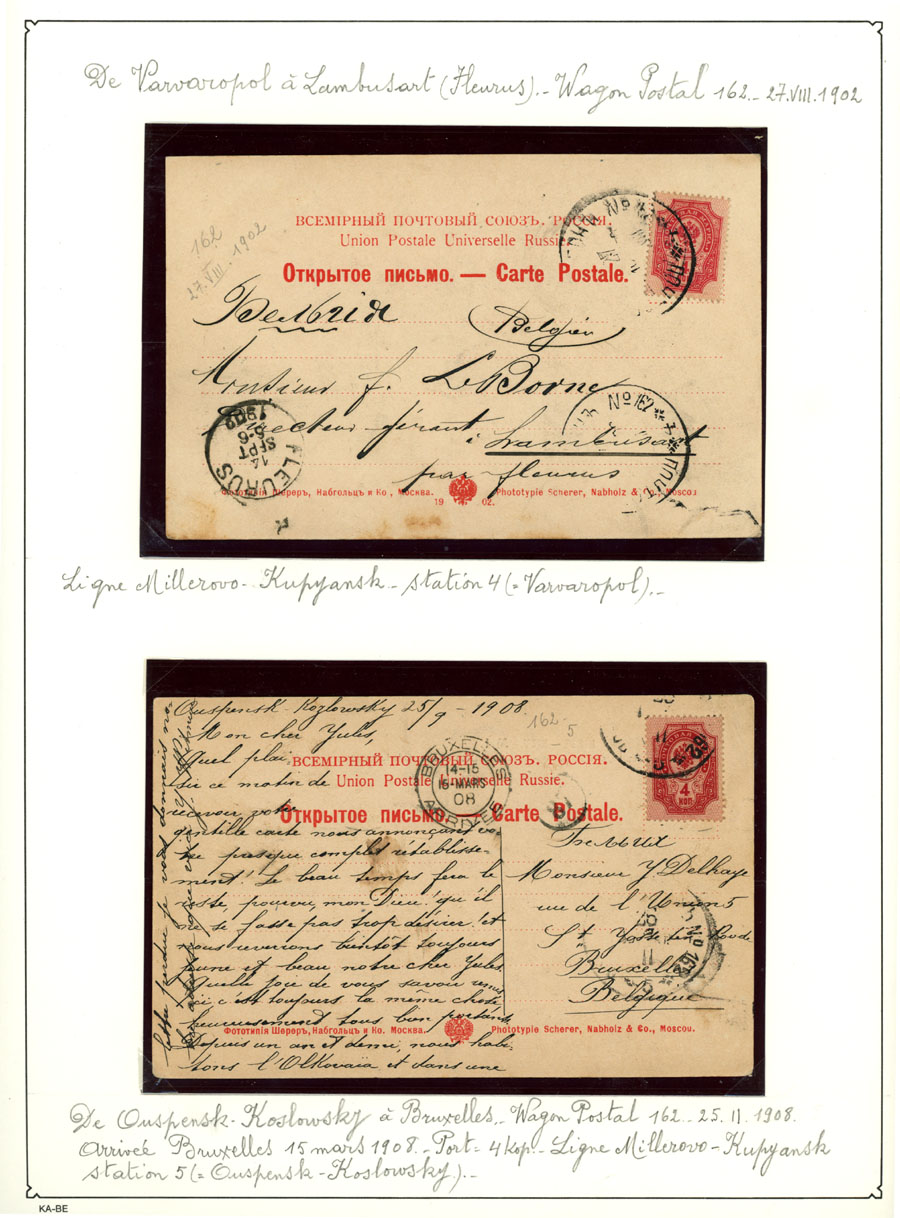 De Varvaropol à Lambusart (Fleurus). - Wagon Postal 162 - 27.VIII.1902
ВСЕМІРНЫЙ ПОЧТОВЫЙ СОЮЗЪ. РОССІЯ.
Union Postale Universelle Russie
162
27.VIII.1902
Открытое письмо. — Carte Postale.
Бельгія
Belgien
Monsieur f. Le Borne
Directeur gérant
à Lambusart
par fleurus
No 162
FLEURUS
14
SEPT
5-6
1902
Фототипія Шереръ, Набгольцъ и Ко, Москва.
Phototypie Scherer, Nabholz & Co., Moscou
1902.
Ligne Millerovo - Kupyansk - station 4 (= Varvaropol). -
Ouspensk-Kozlowsky 25/9 - 1908
162
5
Mon cher Jules,
Quel plai-
sir ce matin de
recevoir votre
gentille carte nous annonçant vo-
tre presque complet rétablisse-
ment! Le beau temps fera le
reste, pourvu, mon Dieu! qu'il
ne se fasse pas trop désirer! et
nous reverrons bientôt toujours
jeune et beau notre cher Jules.
Quelle joie de vous savoir
ici c'est toujours la même chose
heureusement tous bon portants
Depuis un an et demi, nous habi-
tons l'Olkovaïa et dans une
ВСЕМІРНЫЙ ПОЧТОВЫЙ СОЮЗЪ. РОССІЯ.
Union Postale Universelle Russie.
Открытое письмо. — Carte Postale.
BRUXELLES
14-15
15 MARS
08
ARRIVÉE
4
КОП
Monsieur J Delhaye
rue de l'Union 5
St Josse ten Noode
Bruxelles
Belgique
No 162
Фототипія Шереръ, Набгольцъ и Ко. Москва.
Phototypie Scherer, Nabholz & Co., Moscou.
De Ouspensk-Koslowsky à Bruxelles - Wagon Postal 162 - 25.II.1908.
Arrivée Bruxelles 15 mars 1908 - Port = 4 kop. - Ligne Millerovo - Kupyansk
station 5 (= Ouspensk - Koslowsky). -
KA-BE